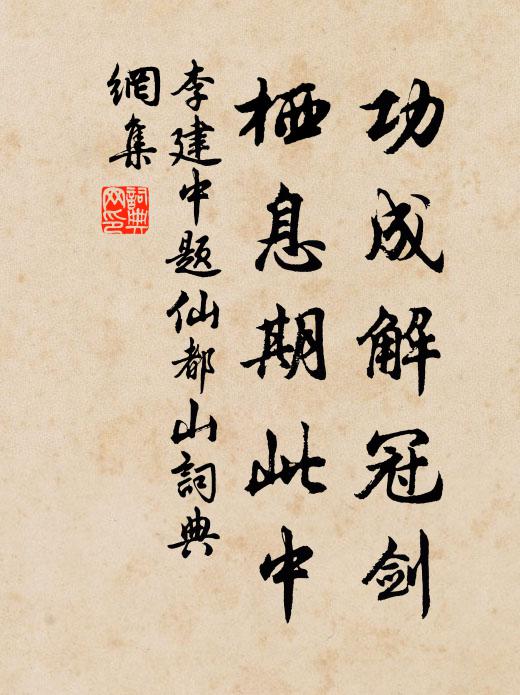 功成解冠剑
栖息期此中
李建中题仙都山詞典
網集
詞典
网印